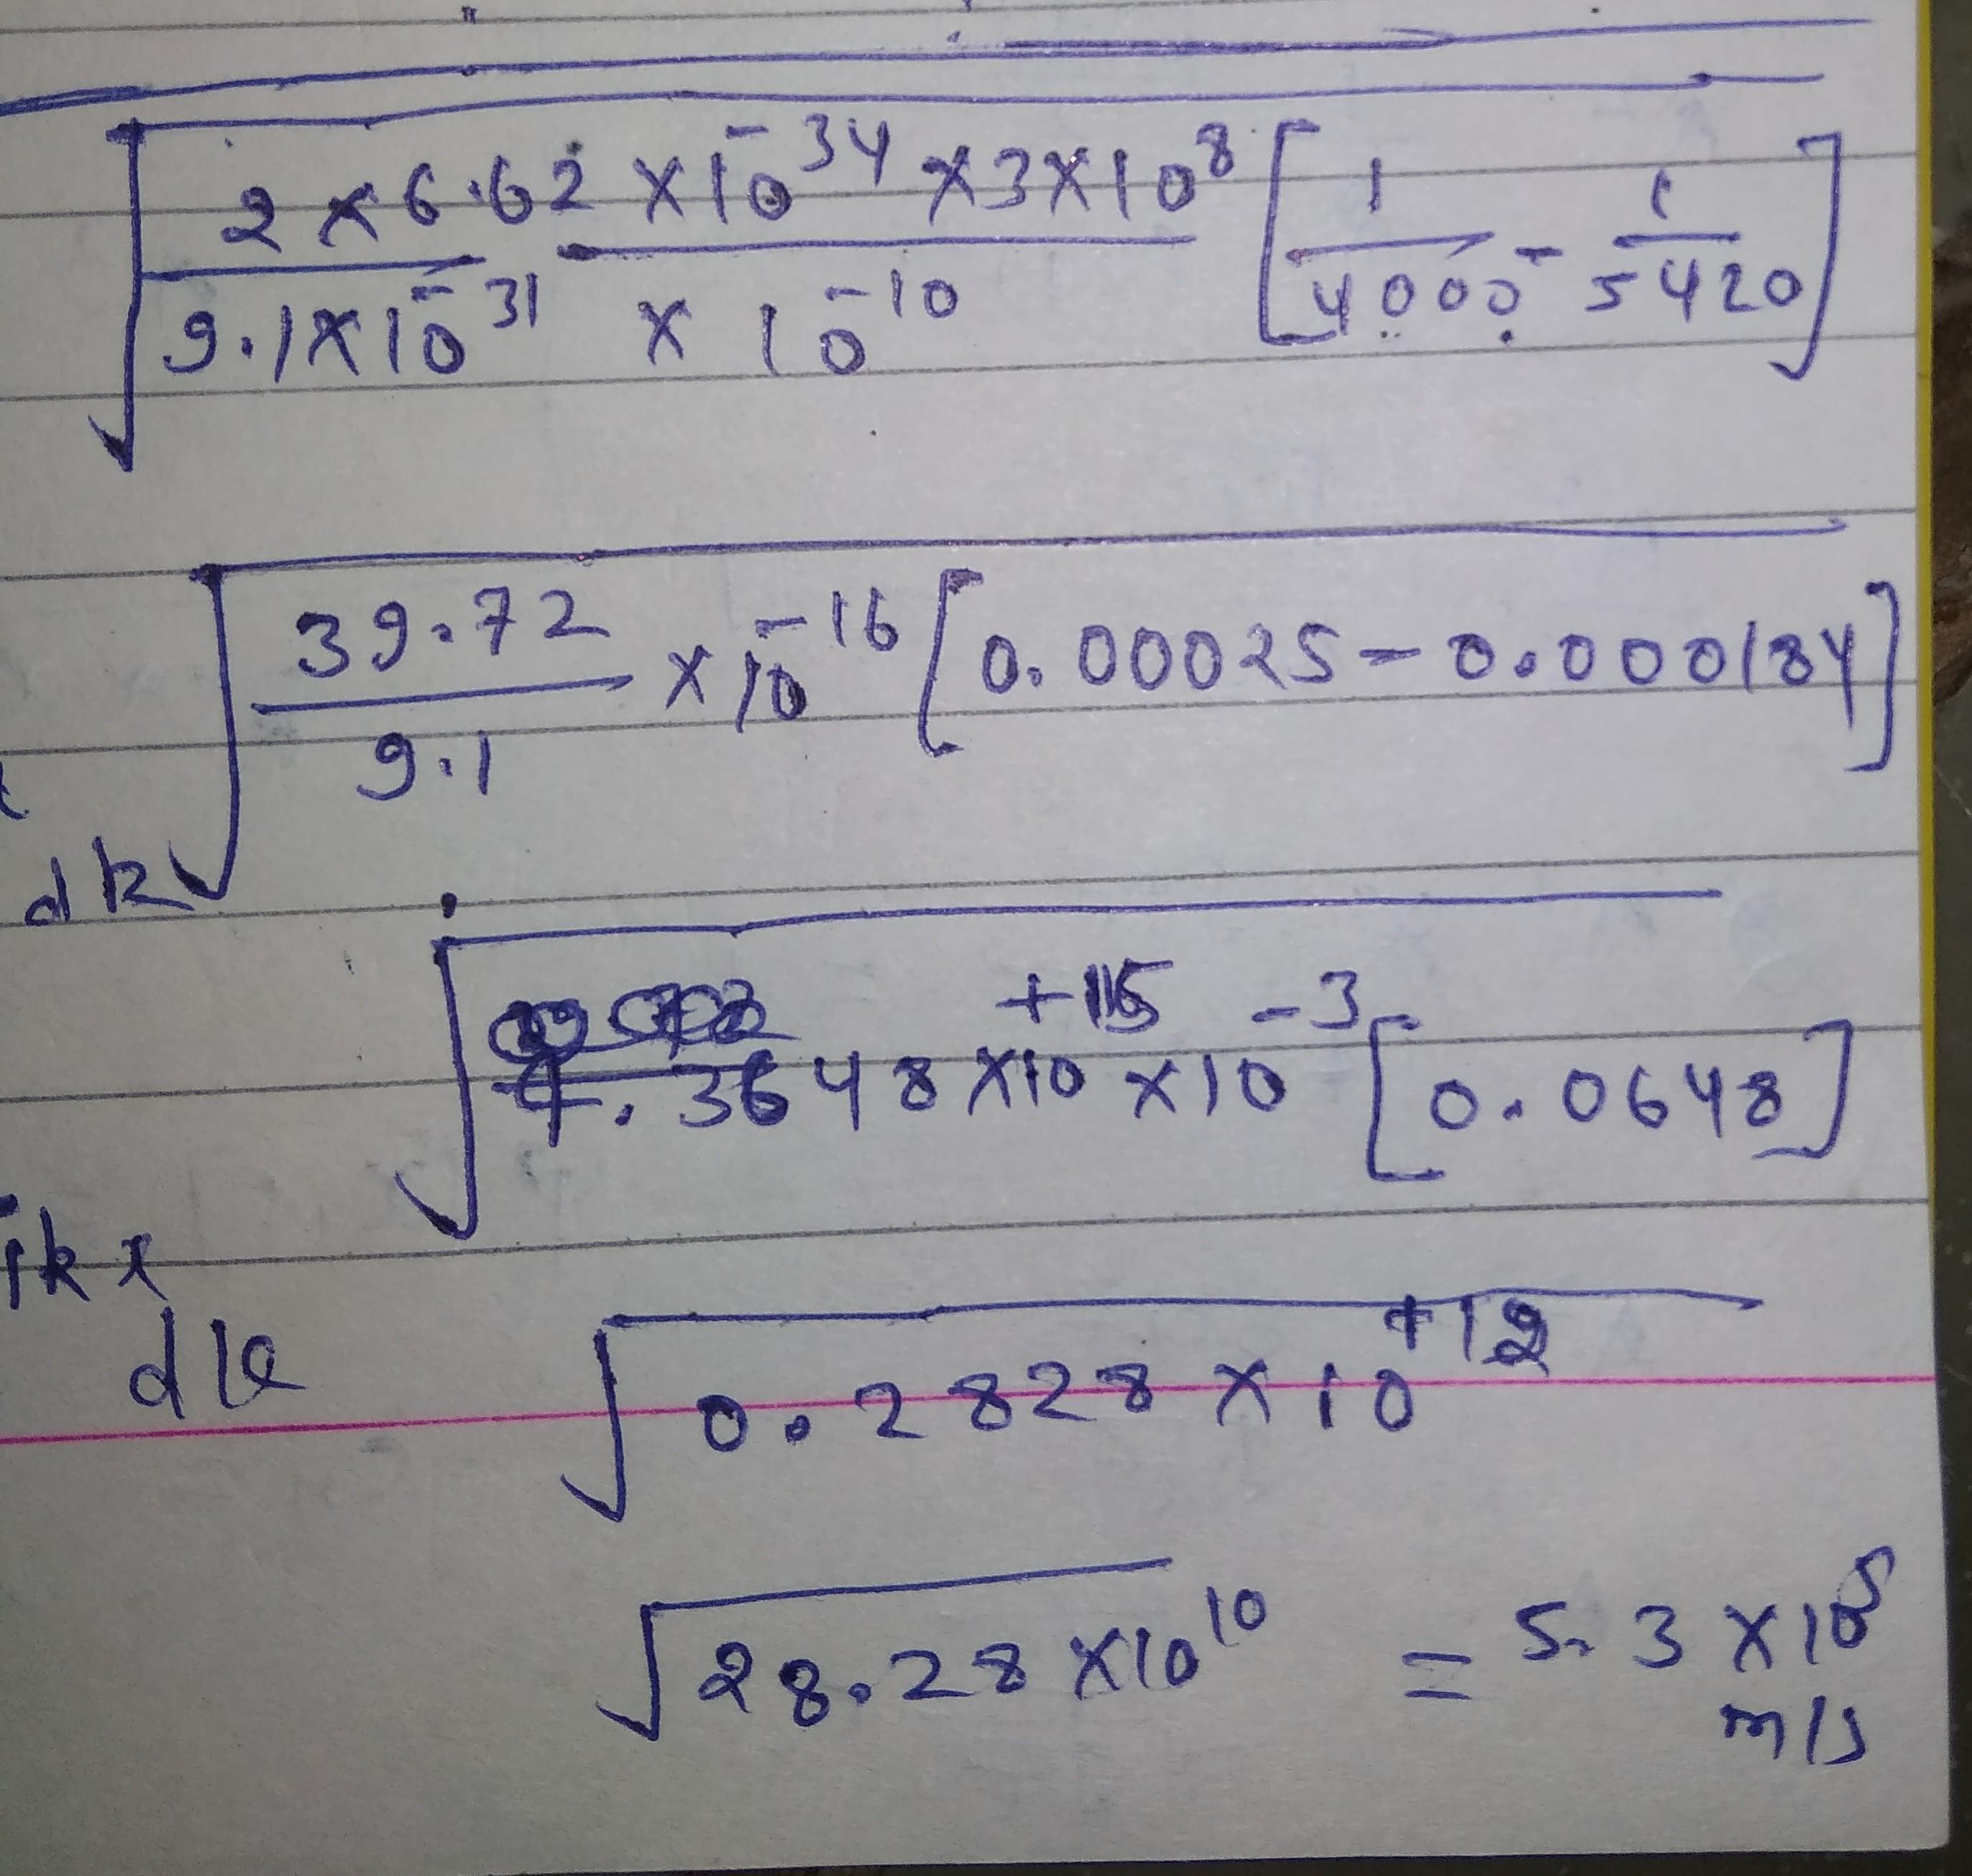 √(2 × 6.62 × 10^-34 × 3 × 10^8 / 9.1 × 10^-31 × 10^-10 [1/4000 - 1/5420])
√(39.72 / 9.1 × 10^-16 [0.00025 - 0.000184])
dk
√(4.3648 × 10^+15 × 10^-3 [0.0648])
ikx
dk
√(0.2828 × 10^+12)
√(28.28 × 10^10) = 5.3 × 10^5
m/s